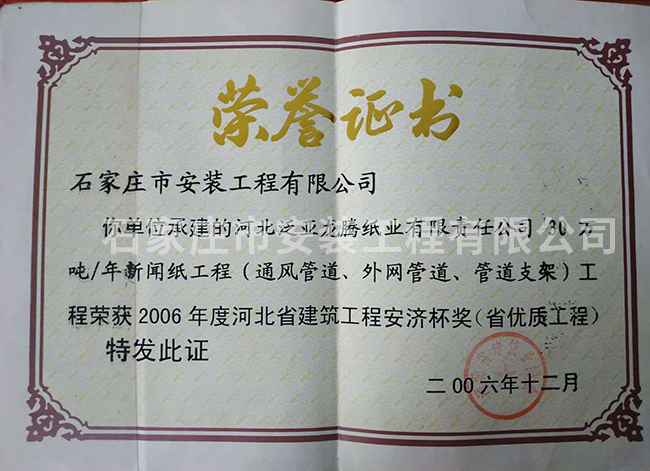 荣誉证书
石家庄市安装工程有限公司
你单位承建的河北泛亚龙腾纸业有限责任公司 30 万
吨/年新闻纸工程（通风管道、外网管道、管道支架）工
程荣获 2006 年度河北省建筑工程安济杯奖（省优质工程）
特发此证
二00六年十二月
石家庄市安装工程有限公司